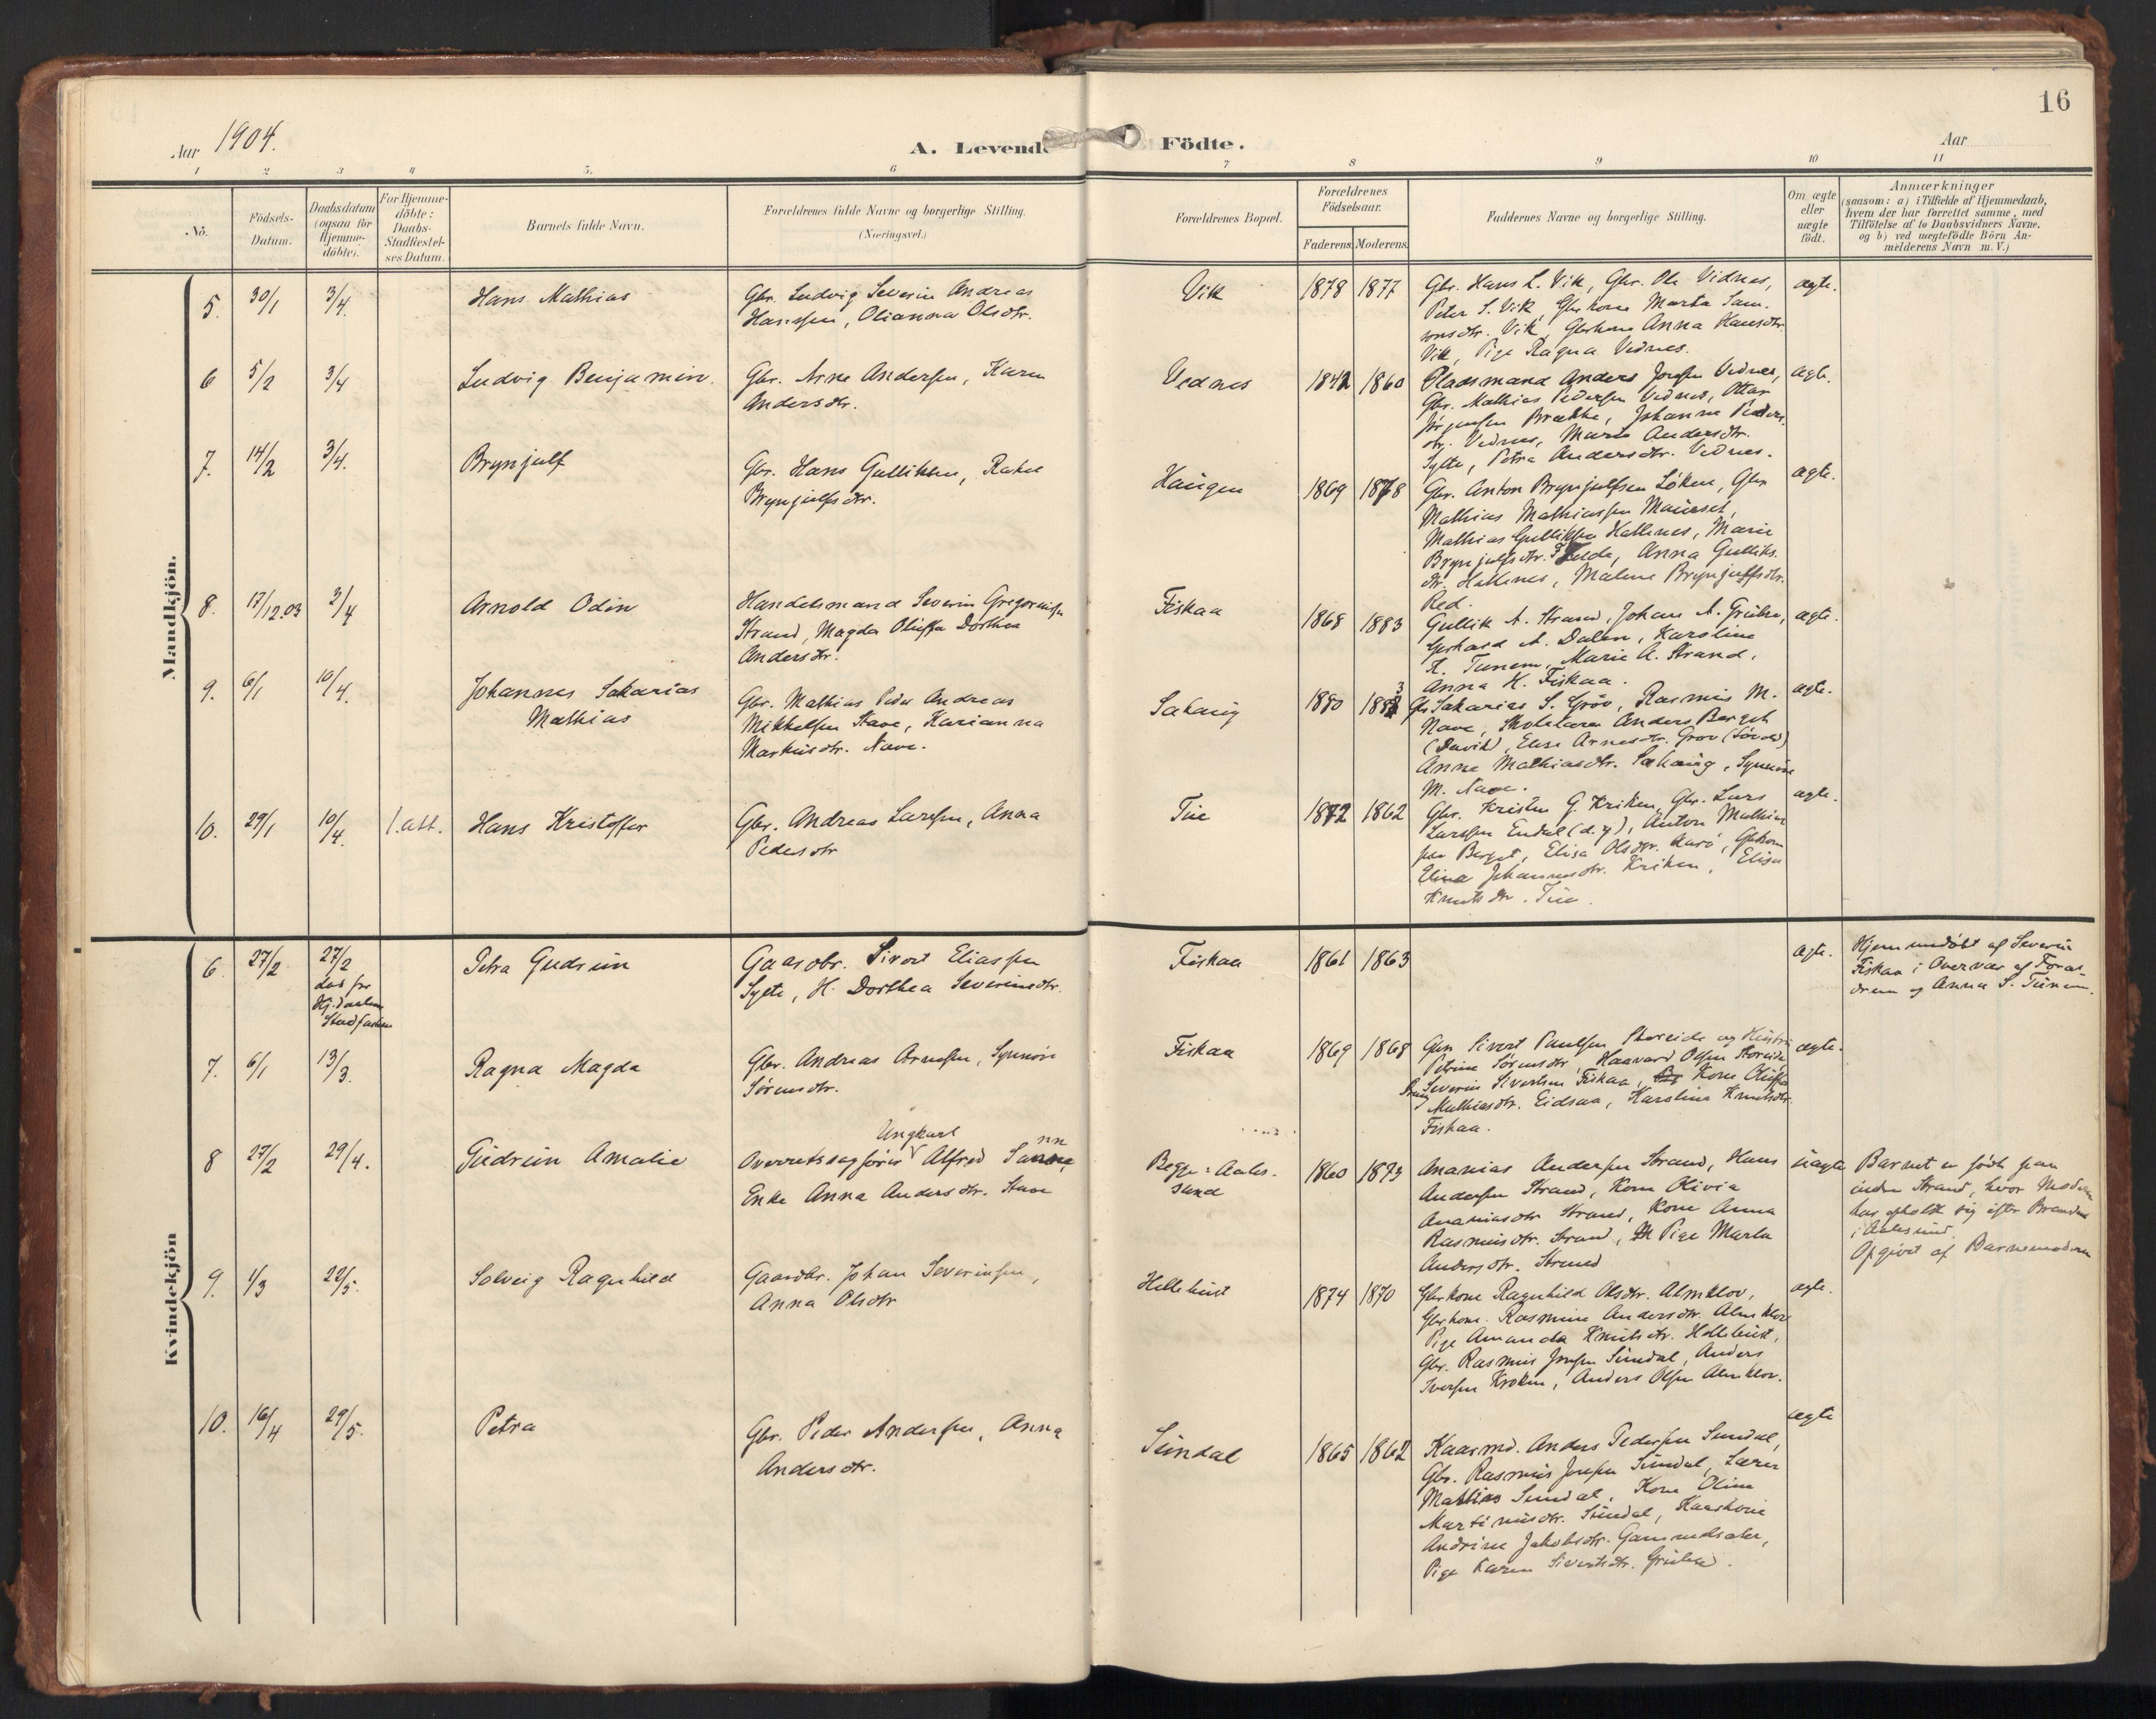 16
Aar 1904.
A. Levende Födte.
Aar
1 2 3 4 5. 6 7 8 9 10 11
No.
Födsels-
Datum.
Daabsdatum
(ogsaa for
Hjemme-
döbte).
For Hjemme-
döbte:
Daabs-
Stadfæstel-
ses Datum.
Barnets fulde Navn.
Forældrenes fulde Navne og borgerlige Stilling.
(Næringsvei.)
Forældrenes Bopæl.
Forældrenes
Födselsaar.
Faderens. Moderens.
Faddernes Navne og borgerlige Stilling.
Om ægte
eller
uægte
födt.
Anmærkninger
(saasom: a) i Tilfælde af Hjemmedaab,
hvem der har forrettet samme, med
Tilföielse af to Daabsvidners Navne.
og b) ved uægtefödte Börn An-
melderens Navn m. V.)
Mandkjön.
5. 30/1 3/4. Hans Mathias
Gbr. Ludvig Severin Andreas
Hanssen, Olianna Olsdtr.
Vik 1878 1877
Gbr. Hans L. Vik, Gbr. Ole Vidnes,
Peter S. Vik, Gbrkone Marta Sam-
sonsdtr. Vik, Gbrkone Anna Hansdtr.
Vik, Pige Ragna Vednes.
ægte.
6 5/2 3/4 Ludvig Benjamin.
Gbr. Arne Andersen, Karen
Andersdtr.
Vednes 1842 1860
Pladsmand Anders Jonsen Vednes,
Gbr. Mathias Pedersen Vednes, Ottar
Jörgensen Brække, Johanne Peders-
dtr. Vednes, Marte Andersdtr.
Sylte, Petra Andersdtr. Vednes.
ægte.
7. 14/2 3/4. Brynjulf
Gbr. Hans Gulliksen, Rakel
Brynjulfsdtr.
Haugen 1869 1878
Gbr. Anton Brynjulfsen Löken, Gbr.
Mathias Mathiassen Maurset,
Mathias Gulliksen Hallenes, Marie
Brynjulfsdtr. Fjelde, Anna Gulliks-
dtr. Hallenes, Malene Brynjulfsdtr.
Red.
ægte.
8. 17/12.03 3/4 Arnold Odin
Handelsmand Severin Gregoriusen
Strand, Magda Oluffa Dorthea
Andersdtr.
Fiskaa 1868 1883
Gullik A. Strand, Johan A. Gruben,
Gerhard A. Dalen, Karoline
A. Tunem, Marie A. Strand,
Anna H. Fiskaa.
ægte.
9. 6/1 10/4. Johannes Sakarias
Mathias
Gbr. Mathias Peder Andreas
Mikkelsen Stave, Karianna
Markusdtr. Nave.
Sakaug 1880
Gbr. Sakarias S. Gröv, Rasmus M.
Nave, Skolelærer Anders Berget
(Davik), Elise Arnesdtr. Grov
Anne Mathiasdtr. Sakaug, Synnöve
M. Nave.
ægte.
10. 29/1 10/4. 1. att. Hans Kristoffer
Gbr. Andreas Larssen, Anna
Pedersdtr
Tue 1872 1862
Gbr. Kristen G. Kriken, Gbr. Lars
Larssen Eudal (d. y), Anton Mathias-
sen Berget, Elisa Olsdtr. Aarö, Gbrkone
Elina Johannesdtr. Kriken, Elisa
Knutsdtr. Tue.
ægte.
Kvindekjön
6. 27/2 27/2
Hj. daaben
Stadfæstes
Petra Gudrun
Gaardbr. Sivert Eliassen
Sylte, H. Dorthea Severinsdtr.
Fiskaa 1861 1863
ægte.
Hjemmedöbt af Severin
Fiskaa i Overvær af Foræl-
drene og Anna S. Tunem.
7. 6/1 13/3. Ragna Magda
Gbr. Andreas Arnesen, Synnöve
Sörensdtr.
Fiskaa 1869 1868
Gbr. Sivert Paulsen Storeide og Hustru
Petrine Sörensdtr, Haavard Olsen Storeide
Severin Sivertsen Fiskaa, Kone Oluffa
Mathiasdtr. Eidsaa, Karoline Knutsdtr.
Fiskaa.
ægte.
8 27/2 29/4. Gudrun Amalie
Ungkarl
Overretssagförer Alfred
Enke Anna Andersdtr. Stave
Begge: Aale-
sund
1860 1873
Ananias Andersen Strand, Hans
Andersen Strand, Kone Olivia
Ananiasdtr Strand, Kone Anna
Rasmusdtr. Strand, Pige Marta
Andersdtr. Strand
uægte
Barnet er födt paa
indre Strand, hvor Moderen
har opholdt sig efter Branden
i Aalesund.
Opgivet af Barnemoderen
9. 1/3 22/5. Solveig Ragnhild
Gaardbr. Johan Severinsen,
Anna Olsdtr
Hellebust 1874 1870
Gbrkone Ragnhild Olsdtr. Almklov,
Gbrkone Rasmine Andersdtr. Almklov
Pige Amanda Knutsdtr. Hellebust,
Gbr. Rasmus Jonsen Sundal, Anders
Iversen Kroken, Anders Olsen Almklov.
ægte.
10. 16/4 29/5. Petra
Gbr. Peder Andersen, Anna
Andersdtr.
Sundal 1865 1862
Kaarmd. Anders Pedersen Sundal,
Gbr. Rasmus Jonsen Sundal, Lærer
Mathias Sundal, Kone Oline
Martinusdtr. Sundal, Kaarkone
Andrine Jakobsdtr. Gammelsæter,
Pige Karen Sivertsdtr. Gruben.
ægte